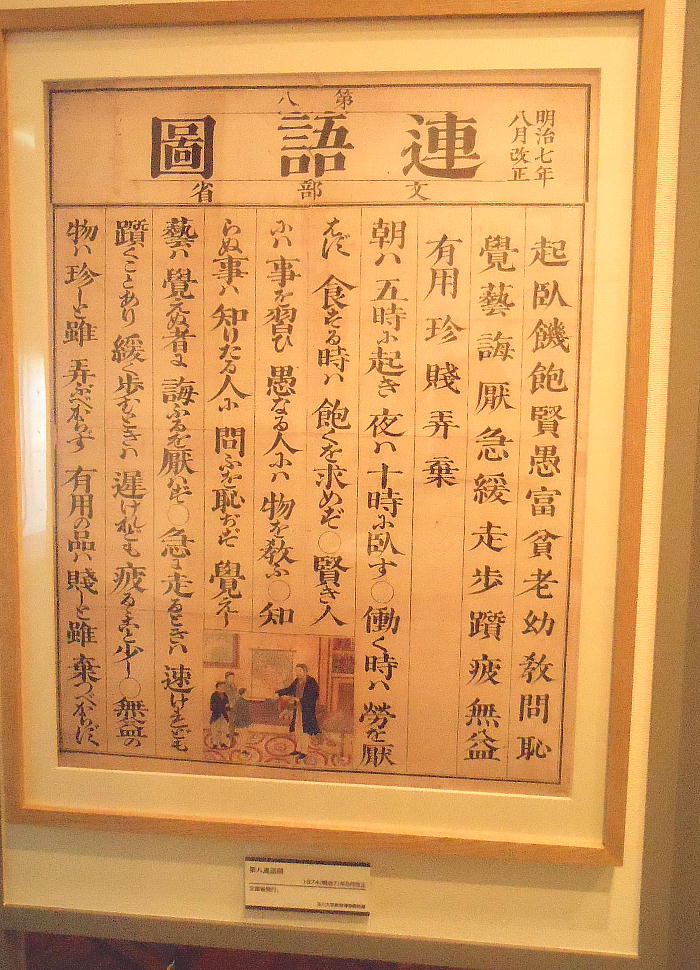 明治七年
八月改正
第八
連語圖
文部省
起臥饑飽賢愚富貧老幼敎問恥
覺藝誨厭急緩走歩躓疲無益
有用珍賤弄棄
朝ハ五時に起き夜ハ十時に臥す〇働く時ハ勞を厭
はず食する時ハ飽くを求めず〇賢き人
にハ事を習ひ愚なる人にハ物を敎ふ〇知
らぬ事ハ知りたる人に問ふを恥ぢず覺えし
藝ハ覺えぬ者に誨ふるを厭はず〇急に走るときハ速けれども
躓くことあり緩く歩むときハ遲けれども疲るること少し〇無益の
物ハ珍しと雖弄ぶべからず有用の品ハ賤しと雖棄つべからず
第八連語圖
1874(明治7)年8月改正
文部省発行。
玉川大学教育博物館所蔵